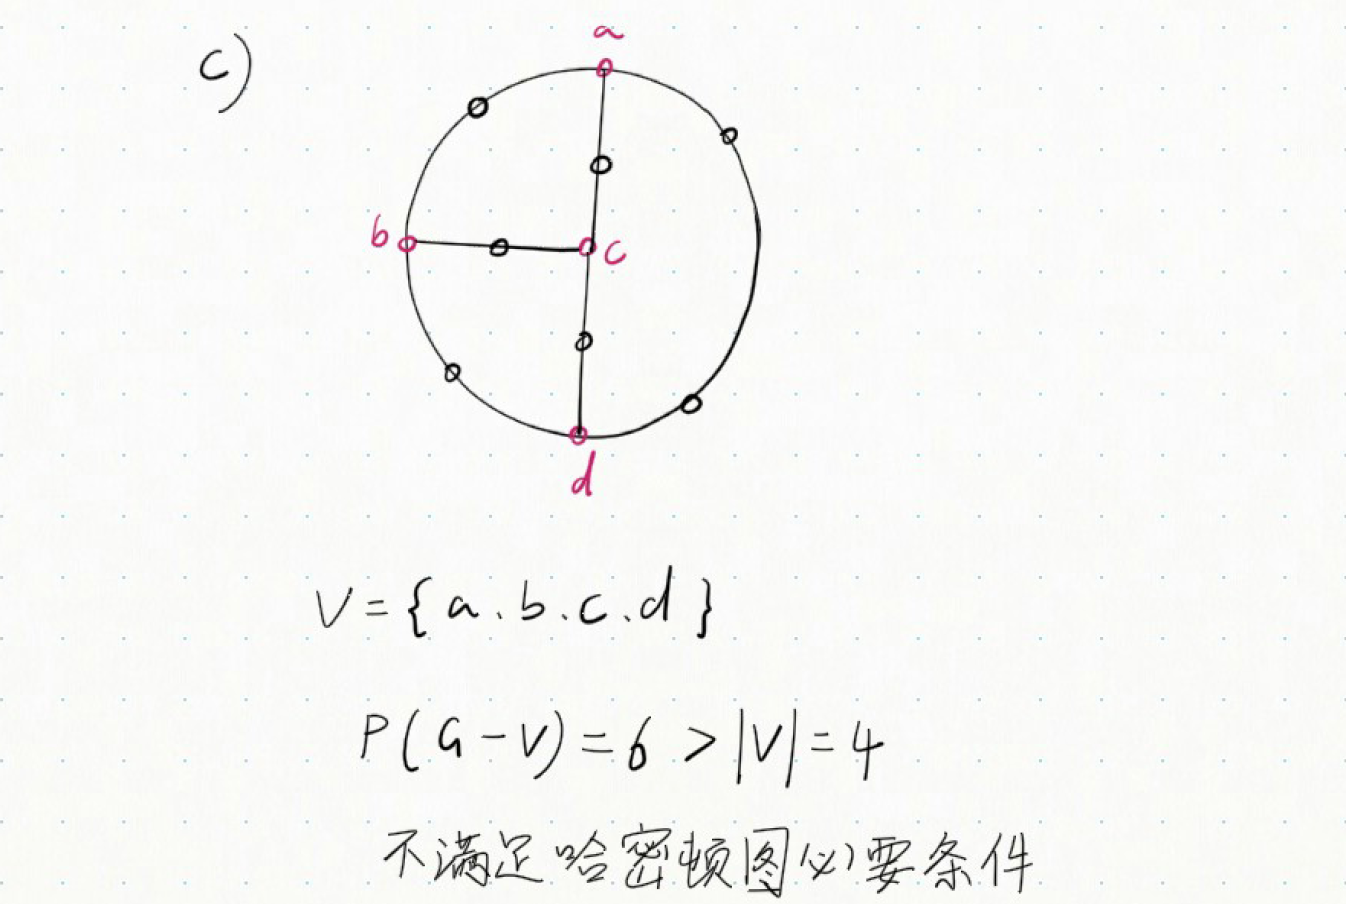 c)
a
b
c
d
V = { a . b . c . d }
P ( G - V ) = 6 > |V| = 4
不满足哈密顿图必要条件